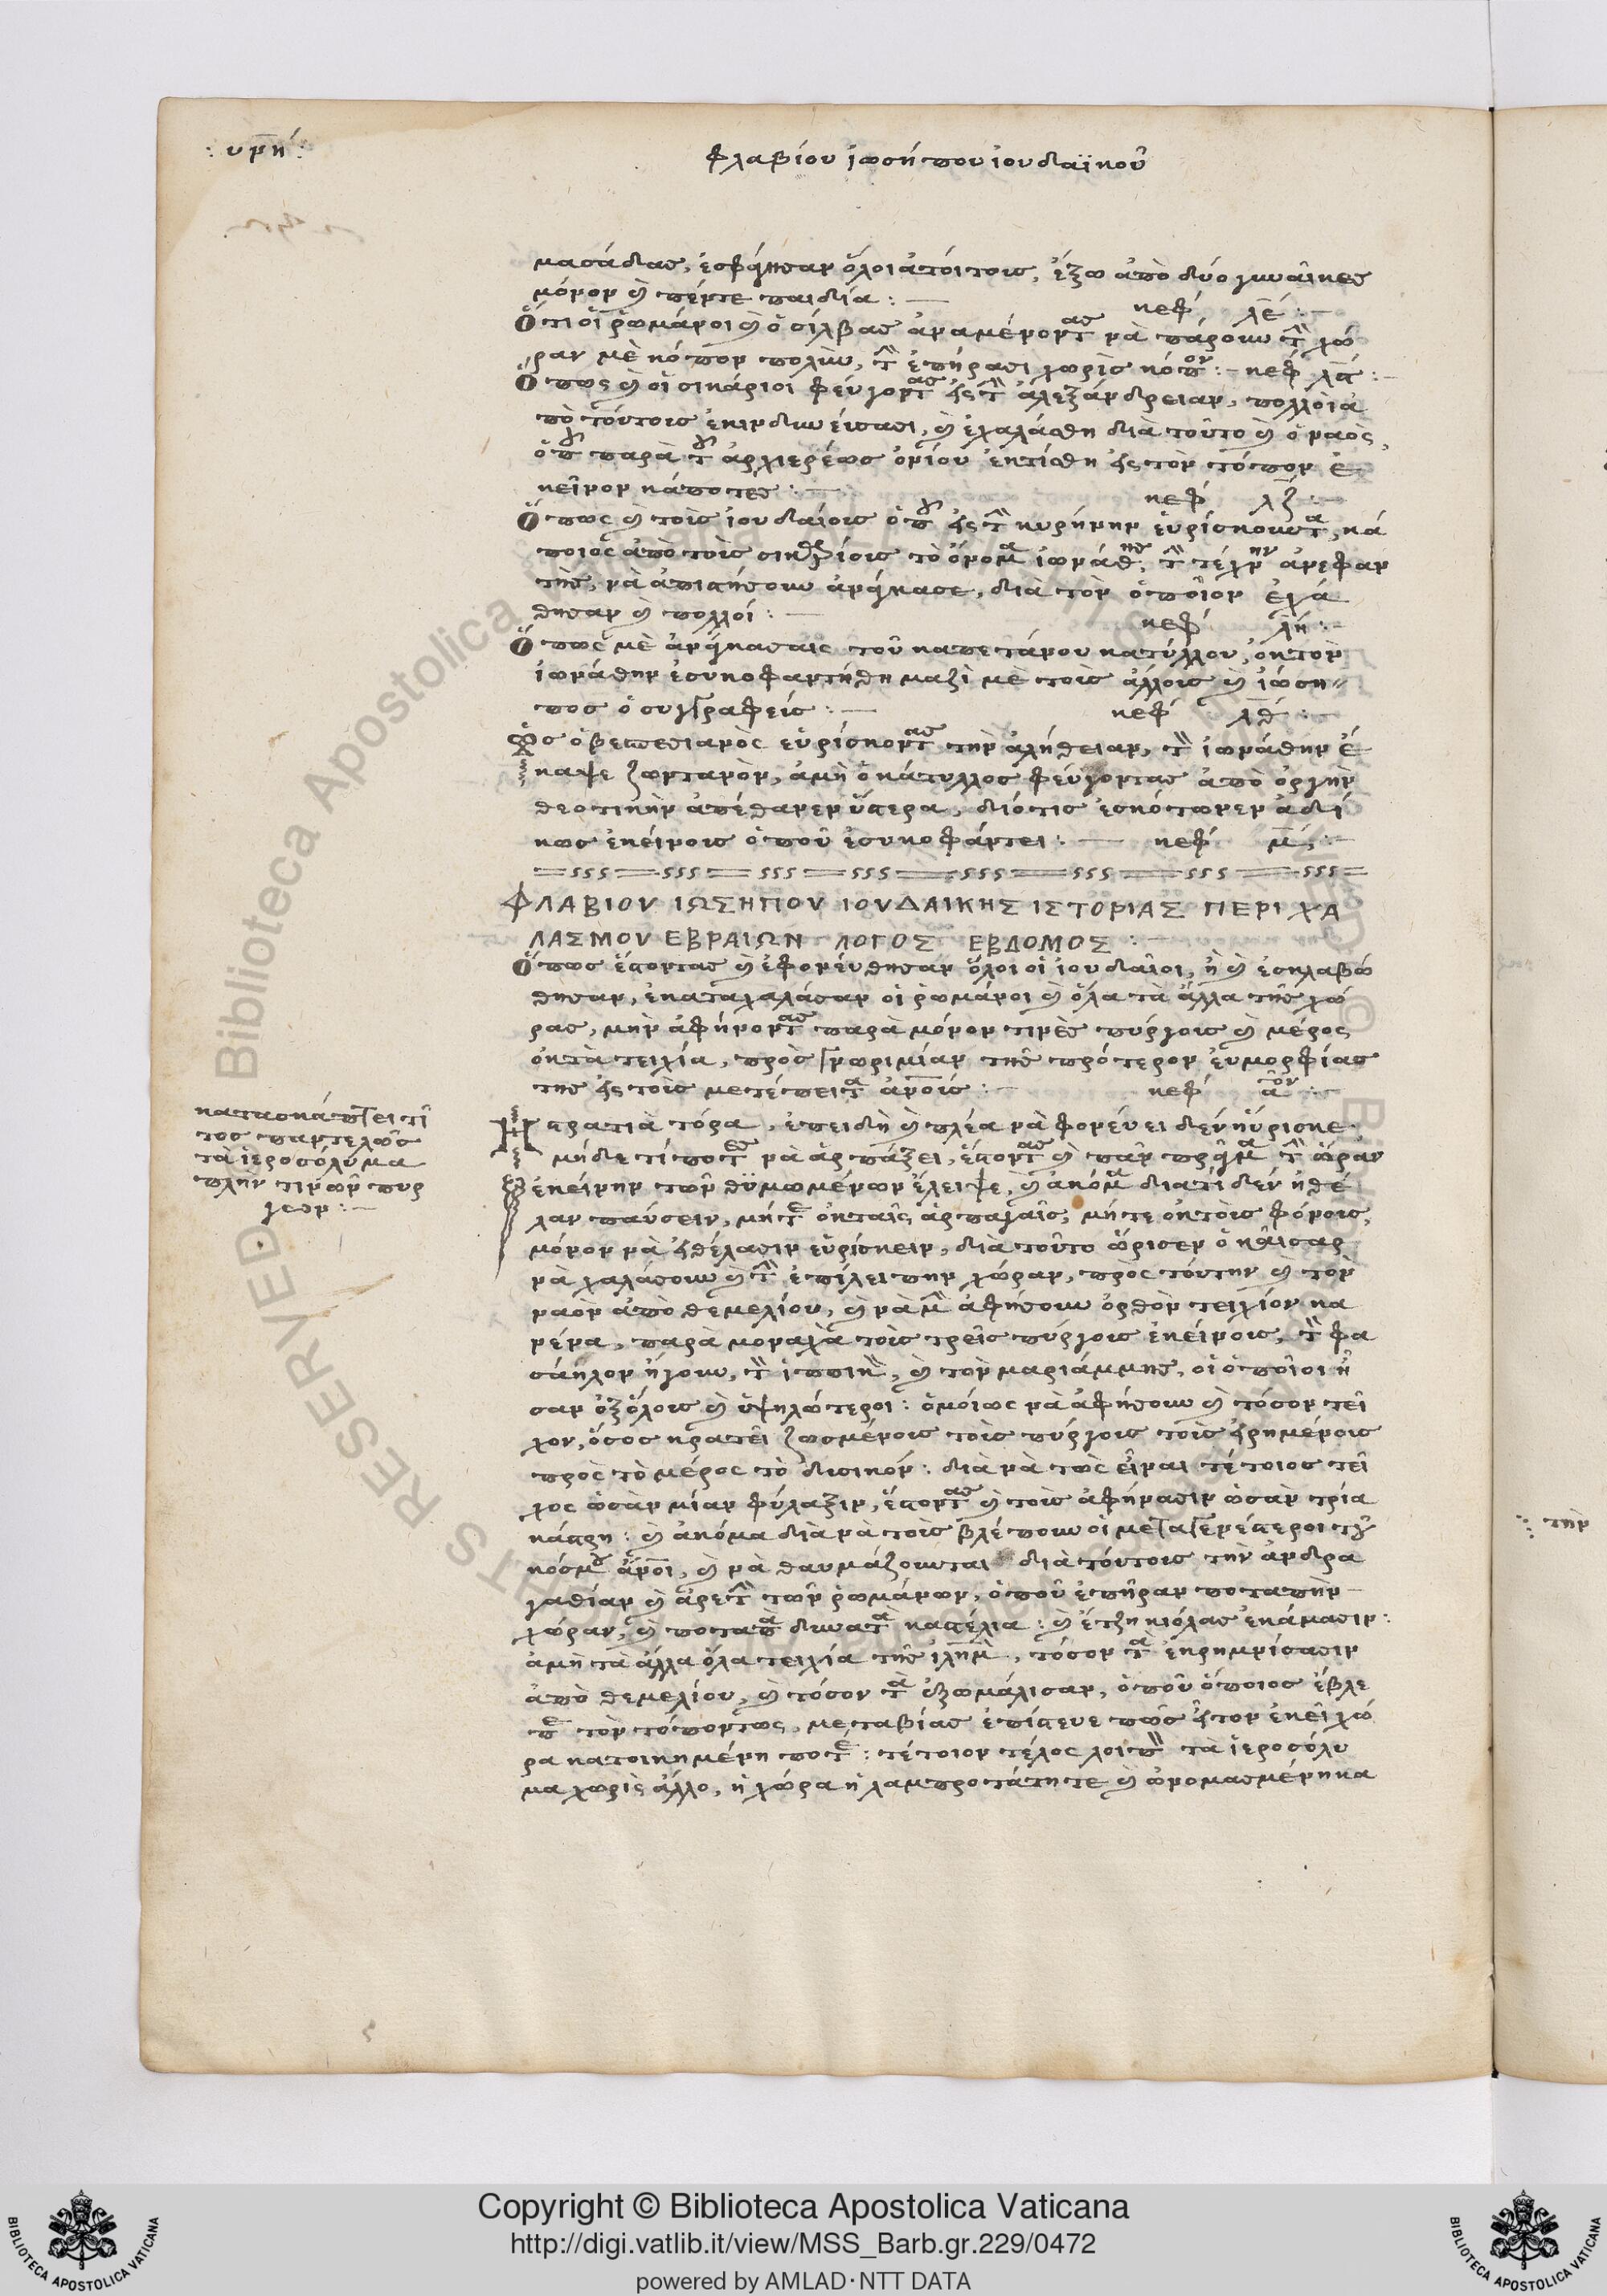 : υνη :
φλαβίου ἰωσήπου ἰουδαϊκοῦ
μασάδας, ἐσφάγησαν ὅλοι ἀτοίτους, ἔξω ἀπὸ δύο γυναῖκες
μόνον καὶ πέντε παιδία : κεφ λε :
Ὅτι οἱ ῥωμάνοι καὶ ὁ σίλβας ἀναμένοντας νὰ πάρουν τὴν χώ
ραν μὲ κόπον πολὺν, τὴν ἐπήρασι χωρὶς κόπον : κεφ λς :
Ὅπως καὶ οἱ σικάριοι φεύγοντας εἰς τὴν ἀλεξάνδρειαν, πολλοὶ ἀ
πὸ τούτους ἐκινδυνεύσασι, καὶ ἐχαλάσθη διὰ τοῦτο καὶ ὁ ναὸς,
ὁποῦ παρὰ τοῦ ἀρχιερέως ὀνίου ἐκτίσθη εἰς τὸν τόπον ἐ
κεῖνον κάποτες : κεφ λζ :
Ὅπως καὶ τοὺς ἰουδαίους ὁποῦ εἰς τὴν κυρήνην εὑρίσκουνται, κά
ποιος ἀπὸ τοὺς σικαρίους τὸ ὄνομα ἰωνάθης, τὴν τέχνην ἀνεφαν
τὴς, νὰ ἀπιστήσουν ἀνάγκασε, διὰ τὸν ὁποῖον ἐχά
θησαν καὶ πολλοί : κεφ λη :
Ὅπως μὲ ἀνάγκασαις τοῦ καπετάνου κατύλλου, ὀκτὸν
ἰωνάθην ἐσυκοφαντήθη μαζὶ μὲ τοὺς ἄλλους καὶ ἰώση
πος ὁ συγγραφεὺς : κεφ λθ :
Ὡς ὁ βεσπεσιανὸς εὑρίσκοντας τὴν ἀλήθειαν, τὸν ἰωνάθην ἔ
καψε ζωντανὸν, ἀμὴ ὁ κάτυλλος φεύγοντας ἀπὸ ὀργὴν
θεοτικὴν ἀπέθανεν ὕστερα, διότις ἐσκότωνεν ἀδί
κως ἐκείνους ὁποῦ ἐσυκοφάντει : κεφ μ :
ΦΛΑΒΙΟΥ ΙΩΣΗΠΟΥ ΙΟΥΔΑΙΚΗΣ ΙΣΤΟΡΙΑΣ ΠΕΡΙ ΧΑ
ΛΑΣΜΟΥ ΕΒΡΑΙΩΝ ΛΟΓΟΣ ΕΒΔΟΜΟΣ :
Ὅπως ἔστοντας καὶ ἐφονεύθησαν ὅλοι οἱ ἰουδαῖοι, ἢ καὶ ἐσκλαβώ
θησαν, ἐκαταχαλάσαν οἱ ῥωμάνοι καὶ ὅλα τὰ ἄλλα τῆς χώ
ρας, μὴν ἀφήνοντας παρὰ μόνον τινὲς πύργους καὶ μέρος
ὀκτὰ τειχία, πρὸς γνωριμίαν τῆς πρότερον εὐμορφίας
της εἰς τοὺς μετέπειτα ἀνους : κεφ αον :
κατασκάπτει τῖ
τος παντελῶς
τὰ ἱεροσόλυμα
πλὴν τινῶν πυρ
γων :
Η στρατιὰ τόρα, ἐπειδὴ καὶ πλέα νὰ φονεύει δὲν ηὕρισκε
μήδε τίποτες νὰ ἁρπάξει, ἔστοντας καὶ πᾶν πρᾶγμα τὴν ὥραν
ἐκείνην τῶν θυμωμένων ἔλειψε, καὶ ἀκόμα διατὶ δὲν ἠθέ
λαν παύσειν, μήτε ὀκταῖς ἁρπαγαῖς, μήτε ὀκτοὺς φόνους,
μόνον νὰ εἰθέλασιν εὑρίσκειν, διὰ τοῦτο ὥρισεν ὁ καῖσαρ
νὰ χαλάσουν καὶ τὴν ἐπίλειπην χώραν, πρὸς τούτην καὶ τὸν
ναὸν ἀπὸ θεμελίου, καὶ νὰ μὴν ἀφήσουν ὀρθὸν τειχίον κα
νένα, παρὰ μοναχὰ τοὺς τρεῖς πύργους ἐκείνους, τὸν φα
σάηλον ἤγουν, τὸν ἱππικὸν, καὶ τὸν μαριάμμης, οἱ ὁποῖοι ἦ
σαν ὀξ ὅλους καὶ ὑψηλώτεροι : ὁμοίως νὰ ἀφήσουν καὶ τόσον τεῖ
χον, ὅσος κρατεῖ ζωσμένους τοὺς πύργους τοὺς εἰρημένους
πρὸς τὸ μέρος τὸ δυσικόν : διὰ νὰ τῶς εἶναι τέτοιος τεῖ
χος ὡσὰν μίαν φύλαξιν, ἔστοντας καὶ τοὺς ἀφήνασιν ὡσὰν τρία
κάστρη : καὶ ἀκόμα διὰ νὰ τοὺς βλέπουν οἱ μεταγενέστεροι τοῦ
κόσμου ἄνοι, καὶ νὰ θαυμάζουνται διὰ τούτους τὴν ἀνδρα
γαθίαν καὶ ἀρετὴν τῶν ῥωμάνων, ὁποῦ ἐπῆραν ποταπὴν
χώραν, καὶ ποταπὰ δυνατὰ καστέλια : καὶ ἔτζη κιόλας ἐκάμασιν :
ἀμὴ τὰ ἄλλα ὅλα τειχία τῆς ιλημ, τόσον τὰ ἐκρημνίσασιν
ἀπὸ θεμελίου, καὶ τόσον τὰ ἐξωμάλισαν, ὁποῦ ὅποιος ἔβλε
πε τὸν τόπον τως, μεταβίας ἐπίστευε πῶς εἶτον ἐκεῖ χώ
ρα κατοικημένη ποτέ : τέτοιον τέλος λοιπὸν τὰ ἱεροσόλυ
μα χωρὶς ἄλλο, ἡ χώρα ἡ λαμπροτάτη τε καὶ ὠνομασμένη κα
την
Copyright © Biblioteca Apostolica Vaticana
http://digi.vatlib.it/view/MSS_Barb.gr.229/0472
powered by AMLAD·NTT DATA
BIBLIOTECA APOSTOLICA VATICANA
BIBLIOTECA APOSTOLICA VATICANA